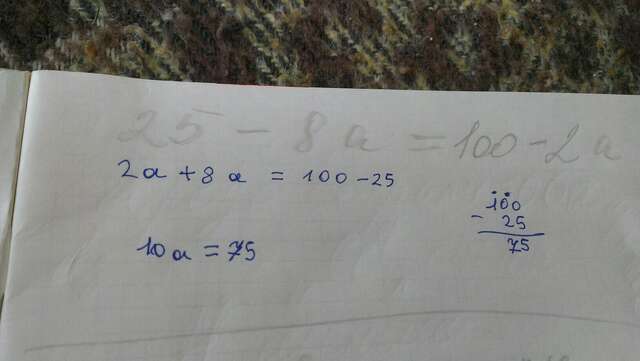 25 - 8a = 100 - 2a
2a + 8a = 100 - 25
10a = 75
100
- 25
75